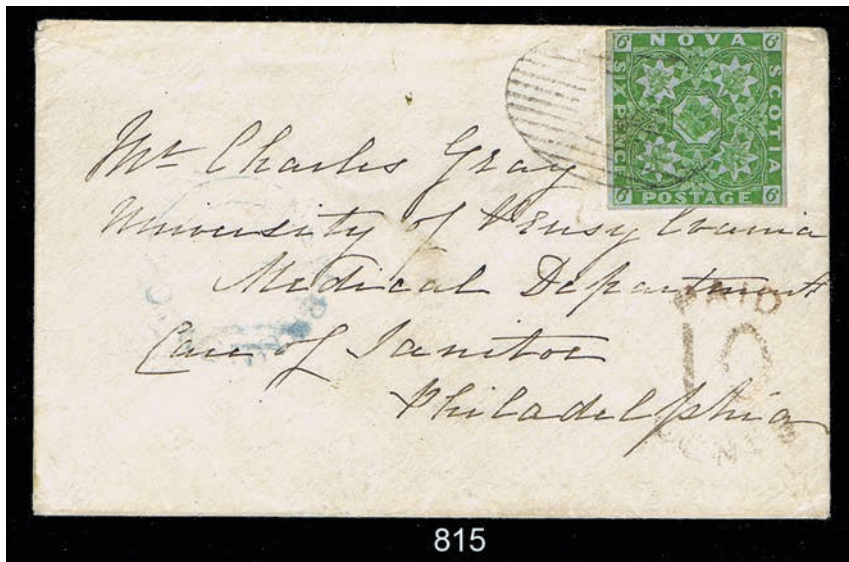 NOVA
SCOTIA
SIX PENCE
POSTAGE
6 6
6 6
Mr Charles Gray
University of Pensylvania
Medical Department
Care of Janitor
Philadelphia
PAID
10
815